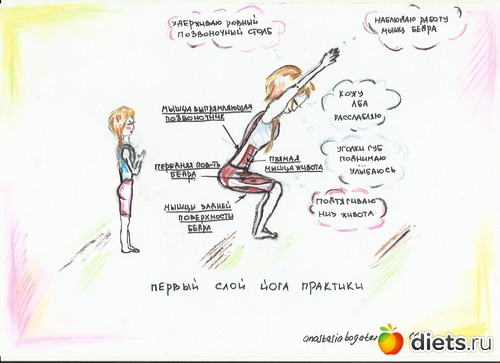 Удерживаю ровный
позвоночный столб
Наблюдаю работу
мышц бедра
Кожу
лба
расслабляю
Мышца выпрямляющая
позвоночник
Уголки губ
поднимаю
улыбаюсь
Передняя пов-ть
бедра
Прямая
мышца живота
Подтягиваю
низ живота
Мышцы задней
поверхности
бедра
Первый слой йога практики
diets.ru